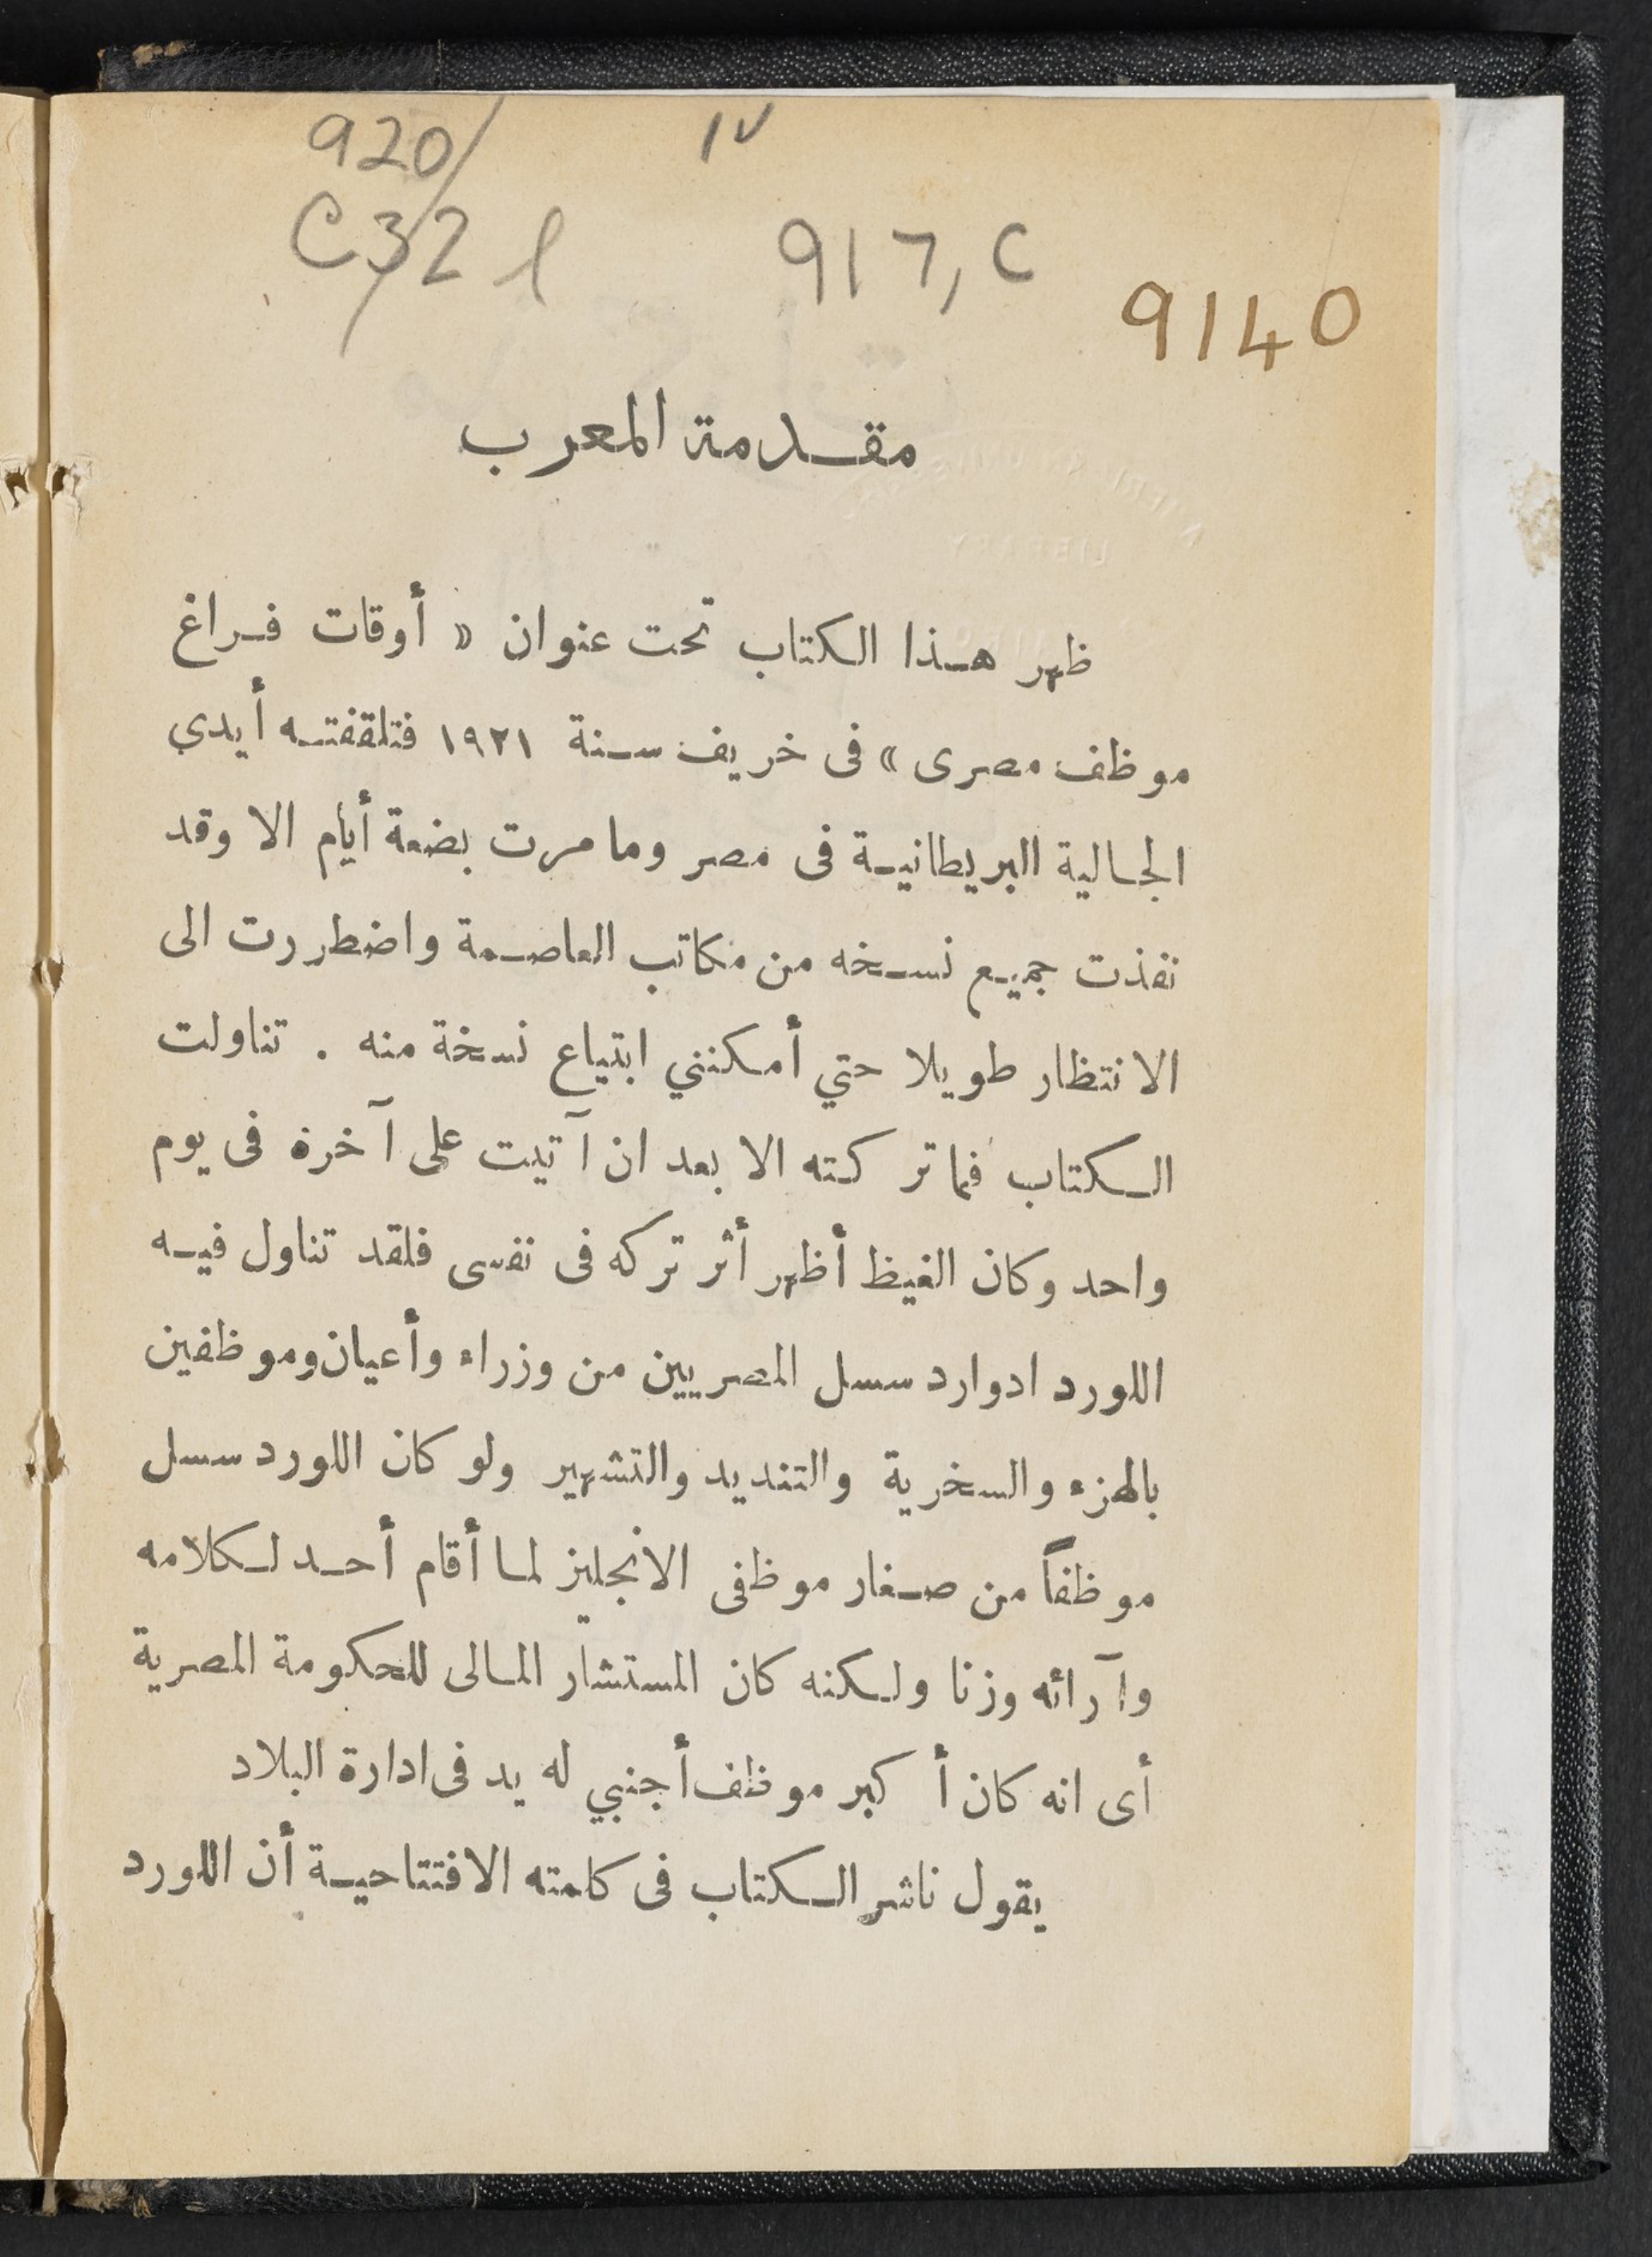 920/ ١٧
C32 l 917,C
9140
مقدمة المعرب
ظهر هذا الكتاب تحت عنوان « أوقات فراغ
موظف مصرى » فى خريف سنة ١٩٢١ فتلقفته أيدي
الجالية البريطانية فى مصر وما مرت بضعة أيام الا وقد
نفذت جميع نسخه من مكاتب العاصمة واضطررت الى
الانتظار طويلا حتي أمكنني ابتياع نسخة منه . تناولت
الكتاب فما تركته الا بعد ان آتيت على آخرة فى يوم
واحد وكان الغيظ أظهر أثر تركه فى نفسى فلقد تناول فيه
اللورد ادوارد سسل المصريين من وزراء وأعيان وموظفين
بالهزء والسخرية والتنديد والتشهير ولو كان اللورد سسل
موظفاً من صغار موظفى الانجليز لما أقام أحد لكلامه
وآرائه وزنا ولكنه كان المستشار المالى للحكومة المصرية
أى انه كان أكبر موظف أجنبي له يد فى ادارة البلاد
يقول ناشر الكتاب فى كلمته الافتتاحية أن اللورد